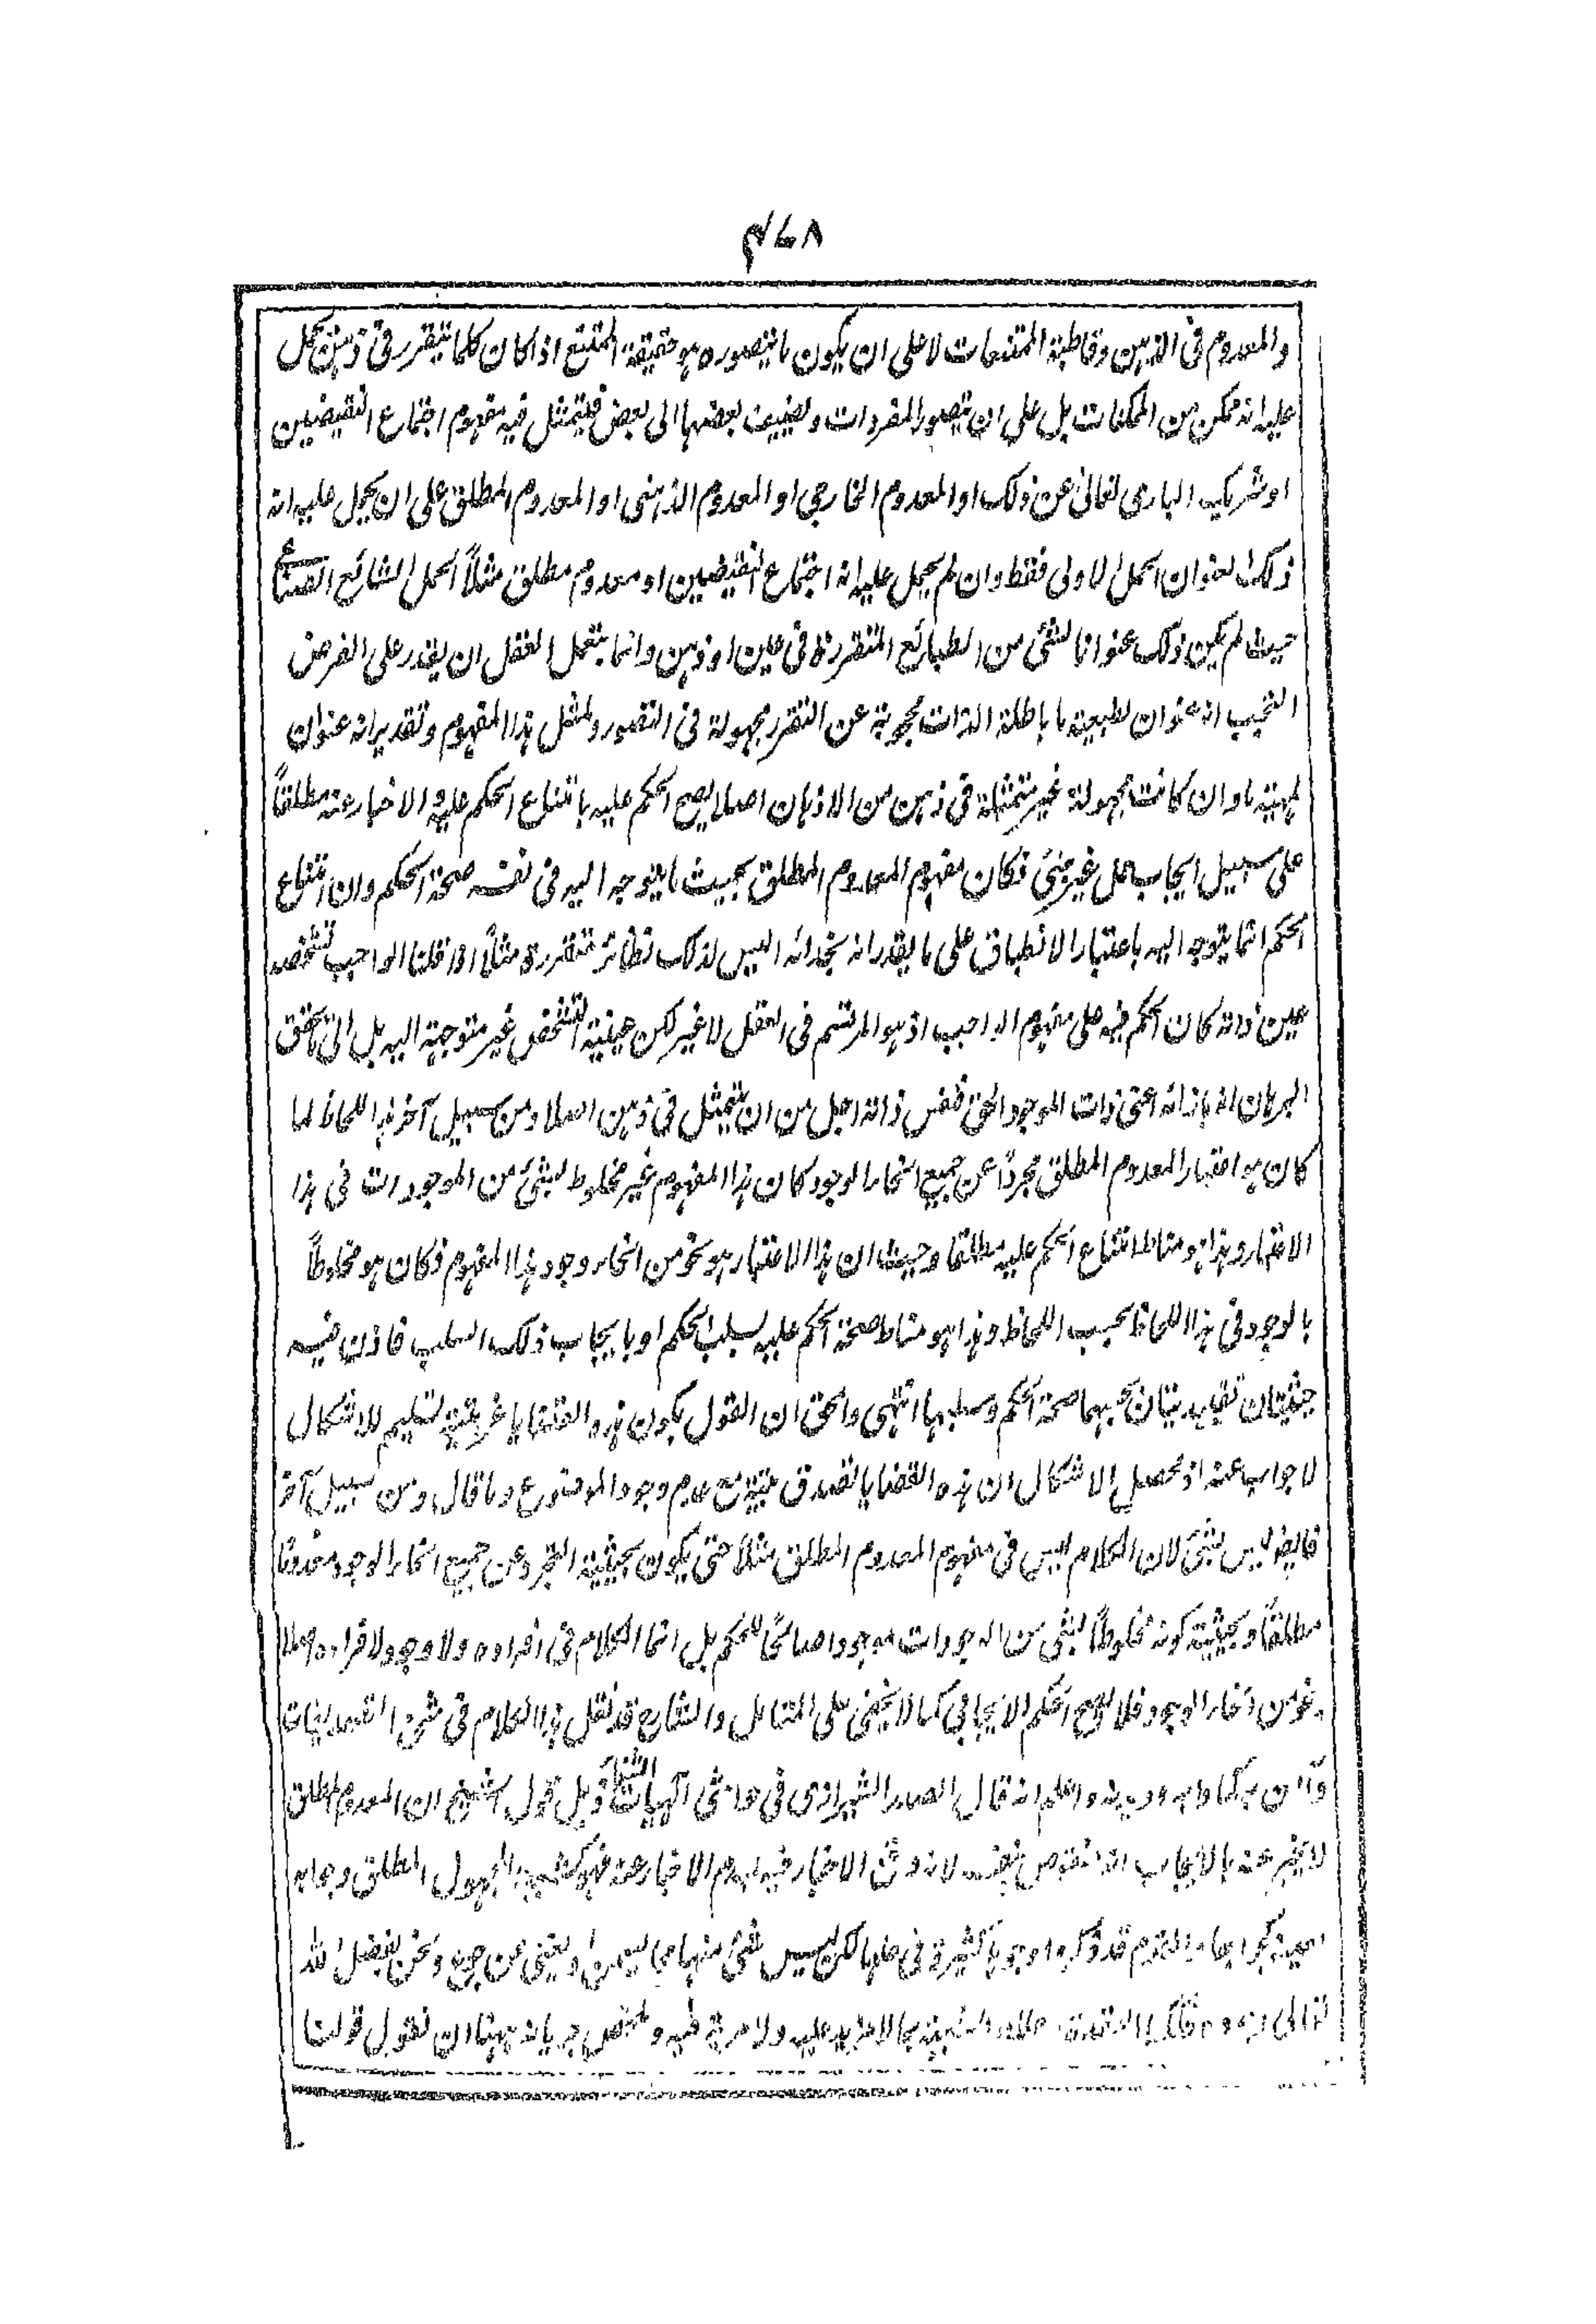 ٤٦٨
والمعدوم فى الذہن وقاطبة الممتنعات لا على ان يكون ما يتصوره ہو حقيقة الممتنع اذ كان كلما يتقرر فى ذہن يحمل
عليہ انہ ممكن من الممكنات بل على ان يتصور المفردات ويضيف بعضہا الى بعض فيتمثل فيہ مفہوم اجتماع النقيضين
او شريك البارى تعالى عن ذلك او المعدوم الخارجى او المعدوم الذہنى او المعدوم المطلق على ان يحمل عليہ انہ
ذلك العنوان الحمل الاولى فقط وان لم يحمل عليہ انہ اجتماع النقيضين او معدوم مطلق مثلاً الحمل الشائع الصناعى
حيث لم يكن ذلك عنوانا لشئ من الطبائع المتقررة فى عين او ذہن وانما بتعمل العقل ان يقدر على الفرض
انہ عنوان لطبيعة ما باطلة الذات محجوبة عن التقرر مجہولة فى التصور ولمثل ہذا المفہوم وتقدير انہ عنوان
لمہية ما وان كانت مجہولة غير متمثلة فى ذہن من الاذہان اصلا يصح الحكم عليہ بامتناع الحكم عليہ والاخبار عنہ مطلقاً
على سبيل ايجاب حمل غير بتى فكان مفہوم المعدوم المطلق بحيث ما يتوجہ اليہ فى نفسہ صحة الحكم وان امتناع
الحكم انما يتوجہ اليہ باعتبار الانطباق على ما يقدر انہ بحذائہ اليس لذلك نظائر متقررة مثلاً اذا قلنا الواجب تشخصہ
عين ذاتہ كان الحكم فيہ على مفہوم الواجب اذ ہو المرتسم فى العقل لا غير لكن عينية التشخص غير متوجہة اليہ بل الى ما حقق
البرہان انہ بازائہ اعنى ذات الموجود الحق فنفس ذاتہ اجل من ان يتمثل فى ذہن اصلا ومن سبيل آخر ہذا اللحاظ لما
كان ہو اعتبار المعدوم المطلق مجرداً عن جميع انحاء الوجود كان ہذا المفہوم غير مخلوط بشئ من الموجودات فى ہذا
الاعتبار وہذا ہو مناط امتناع الحكم عليہ مطلقا وحيث ان ہذا الاعتبار ہو نحو من انحاء وجود ہذا المفہوم فكان ہو مخلوطاً
بالوجود فى ہذا اللحاظ بحسب اللحاظ وہذا ہو مناط صحة الحكم عليہ بسلب الحكم او بايجاب ذلك السلب فاذن فيہ
حيثيتان تقييديتان بحسبہما صحة الحكم وسلبہا انتہى والحق ان القول بكون ہذہ القضايا تسليم للاشكال
لا جواب عنہ اذ محصل الاشكال ان ہذہ القضايا تصدق بتية مع عدم وجود الموضوع وما قال ومن سبيل آخر
فايضا ليس بشئ لان الكلام ليس فى مفہوم المعدوم المطلق مثلا حتى يكون بحيثية التجرد عن جميع انحاء الوجود معدوما
مطلقاً وبحيثية كونہ مخلوطاً بشئ من الوجودات موجودا صالحاً للحكم بل انما الكلام فى افرادہ ولا وجود لافرادہ اصلا
بنحو من انحاء الوجود فلا يصح الحكم الايجابى كما لا يخفى على المتامل والشارح قد نقل ہذا الكلام فى التصديقات
واعلم انہ قال الصدر الشيرازى فى حواشى الہيات الشفاء ذيل قول الشيخ ان المعدوم المطلق
لا يخبر عنہ بالايجاب انہ منقوض بنفسہ لانہ وقع الاخبار فيہ بعدم الاخبار عنہ فہو كشبہة المجہول المطلق وجوابہ
القوم قد ذكروا وجوہا كثيرة فى حلہا لكن ليس شئ منہا مما يسمن او يغنى عن جوع ونحن بفضل اللہ
بما لا مزيد عليہ ولا مرية فيہ وملخص جريانہ ہہنا ان نقول قولنا